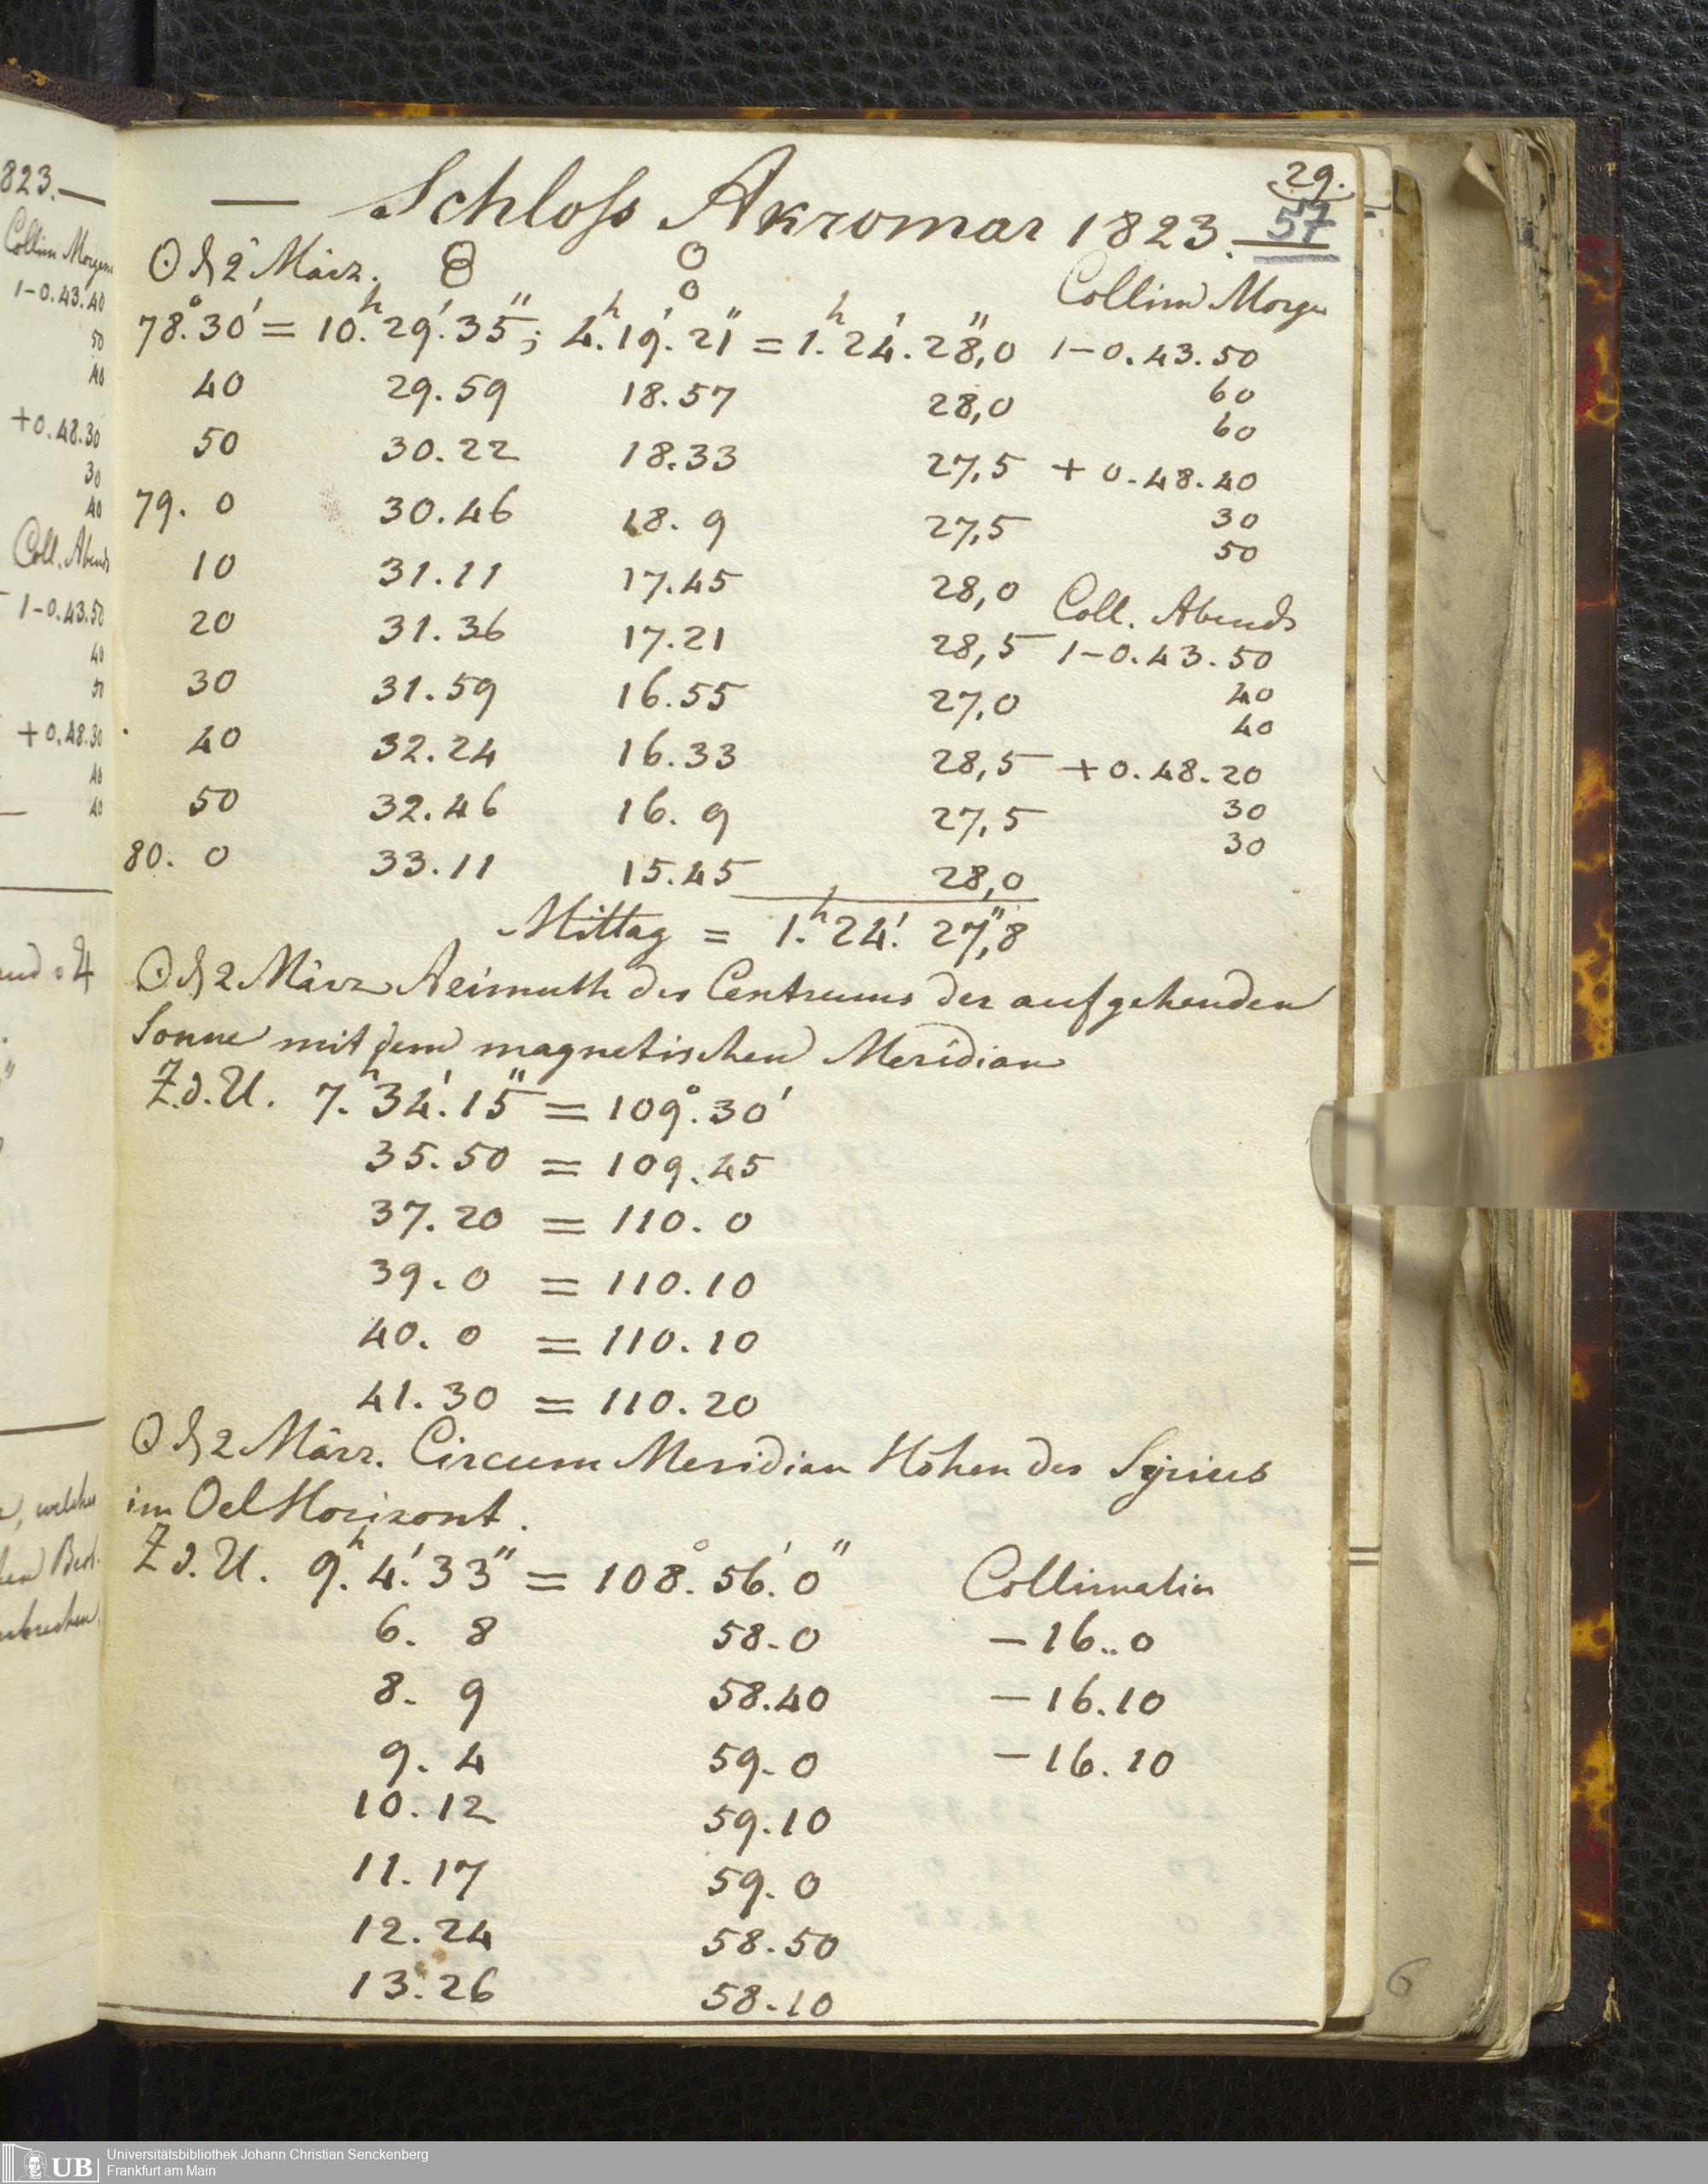 29.
— Schloſs Akromar 1823. 57
☉ d 2 März. Collim Morgen
78°.30′ = 10.h 29′.35″; 4.h 19′.21″ = 1.h 24′.28″,0 1-0.43.50
40 29.59 18.57 28,0 60
60
50 30.22 18.33 27,5 + 0.48.40
79. 0 30.46 18. 9 27,5 30
50
10 31.11 17.45 28,0 Coll. Abends
20 31.36 17.21 28,5 1-0.43.50
30 31.59 16.55 27,0 40
40
40 32.24 16.33 28,5 +0.48.20
50 32.46 16. 9 27,5 30
30
80. 0 33.11 15.45 28,0
Mittag = 1.h 24′. 27″,8
☉ d 2 März Azimuth des Centrums der aufgehenden
Sonne mit dem magnetischen Meridian
Z.d.U. 7.h 34′.15″ = 109°.30′
35.50 = 109.45
37.20 = 110. 0
39. 0 = 110.10
40. 0 = 110.10
41.30 = 110.20
☉ d 2 März. Circum Meridian Höhen des Syrius
im Oel Horizont.
Z d.U. 9.h 4′.33″ = 108°.56′.0″ Collimation
6. 8 58.0 -16..0
8. 9 58.40 -16.10
9. 4 59.0 -16.10
10.12 59.10
11.17 59.0
12.24 58.50
13.26 58.10
6
823.—
Collim Morgens
1-0.43.40
50
40
+0.48.30
30
40
Coll. Abends
1-0.43.50
40
50
+0.48.30
40
40
, welcher
UB Universitätsbibliothek Johann Christian Senckenberg
Frankfurt am Main